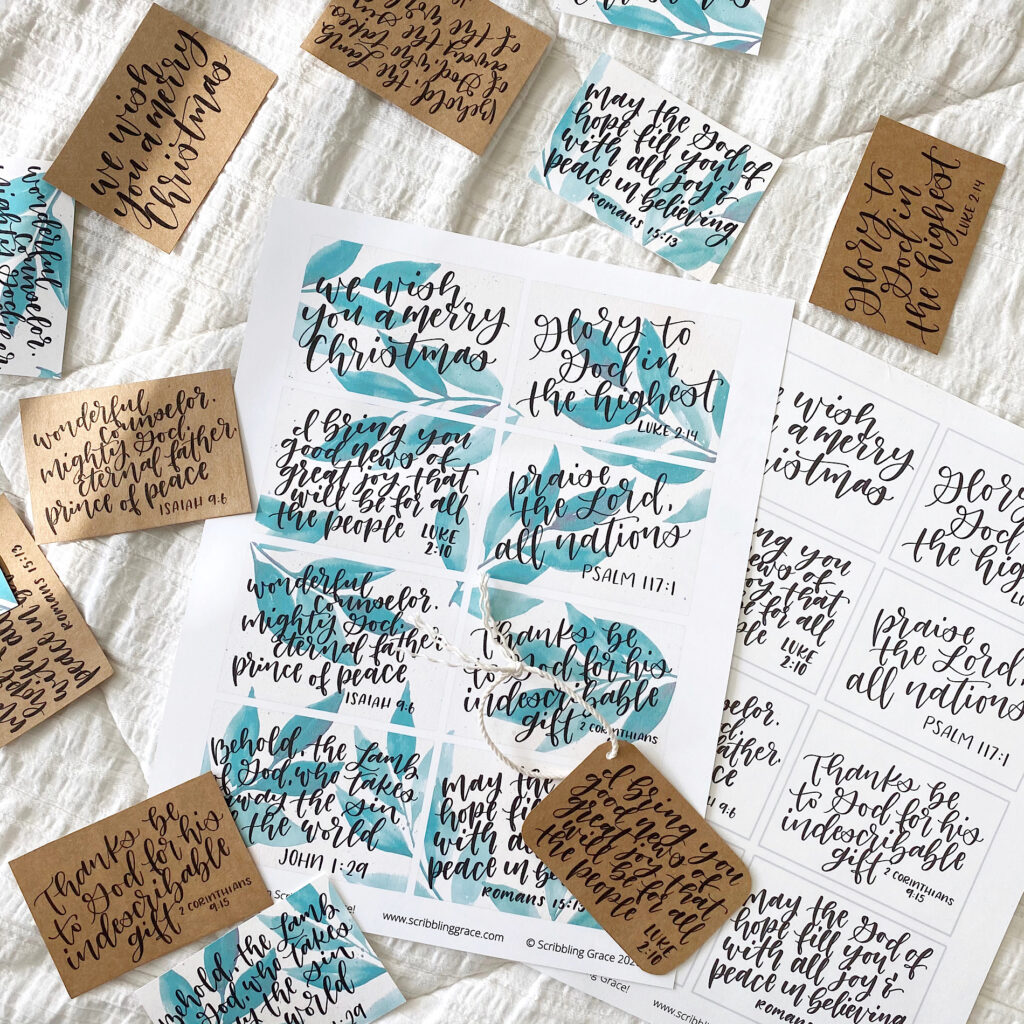 Behold, the Lamb
of God, who takes
away the sin
of the
we wish
you a merry
Christmas
may the God of
hope fill you
with all joy &
peace in believing
Romans 15:13
Glory to
God in
the highest
LUKE 2:14
wonderful
counselor.
mighty God.
wonderful
counselor.
mighty God.
eternal father
prince of peace
ISAIAH 9:6
peace in
Romans 15:13
we wish
you a merry
Christmas
Glory to
God in
the highest
LUKE 2:14
I bring you
good news of
great joy that
will be for all
the people
LUKE
2:10
praise
the Lord,
all nations
PSALM 117:1
wonderful
counselor.
mighty God.
eternal father
prince of peace
ISAIAH 9:6
Thanks be
to God for his
indescribable
gift
2 CORINTHIANS
Behold, the Lamb
of God, who takes
away the sin
the world
JOHN 1:29
may the
hope fill
with al
peace in be
Romans 15:13
www.scribblinggrace.com
© Scribbling Grace 202
g Grace!
wish
a merry
istmas
Glory
God
the hig
ing you
ews of
oy that
e for all
ple
LUKE
2:10
praise
the Lord,
all nations
PSALM 117:1
lor.
d.
ather
ce
9:6
Thanks be
to God for his
indescribable
gift
2 CORINTHIANS
9:15
may the God of
hope fill you
with all joy &
peace in believing
Romans
g Grace!
www.scribblinggrac
I bring you
good news of
great joy that
will be for all
the people
LUKE
2:10
Thanks be
to God for his
indescribable
gift
2 CORINTHIANS
9:15
Behold, the Lamb
God, who takes
y the sin
world
1:29